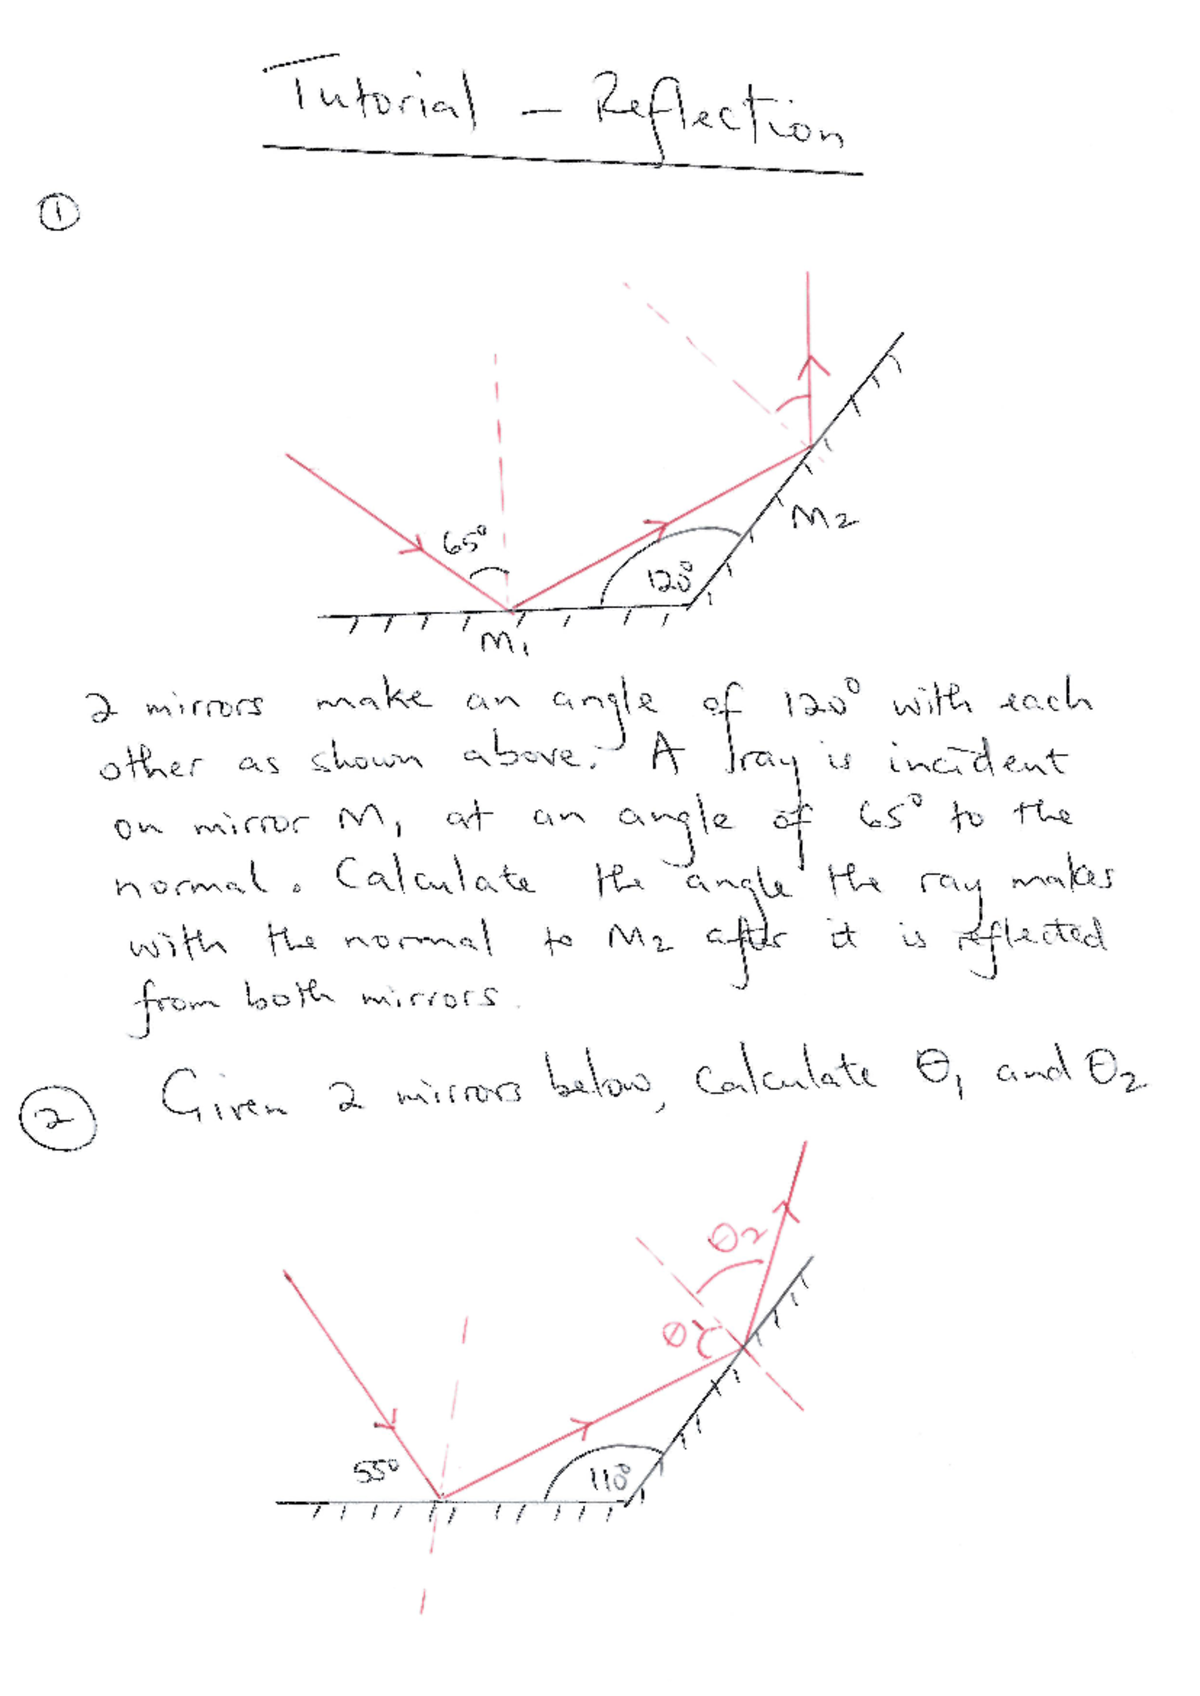 Tutorial - Reflection
①
65°
120°
M2
M1
2 mirrors make an angle of 120° with each
other as shown above. A ray is incident
on mirror M1 at an angle of 65° to the
normal. Calculate the angle the ray makes
with the normal to M2 after it is reflected
from both mirrors.
② Given 2 mirrors below, calculate θ1 and θ2
θ2
θ1
55°
110°